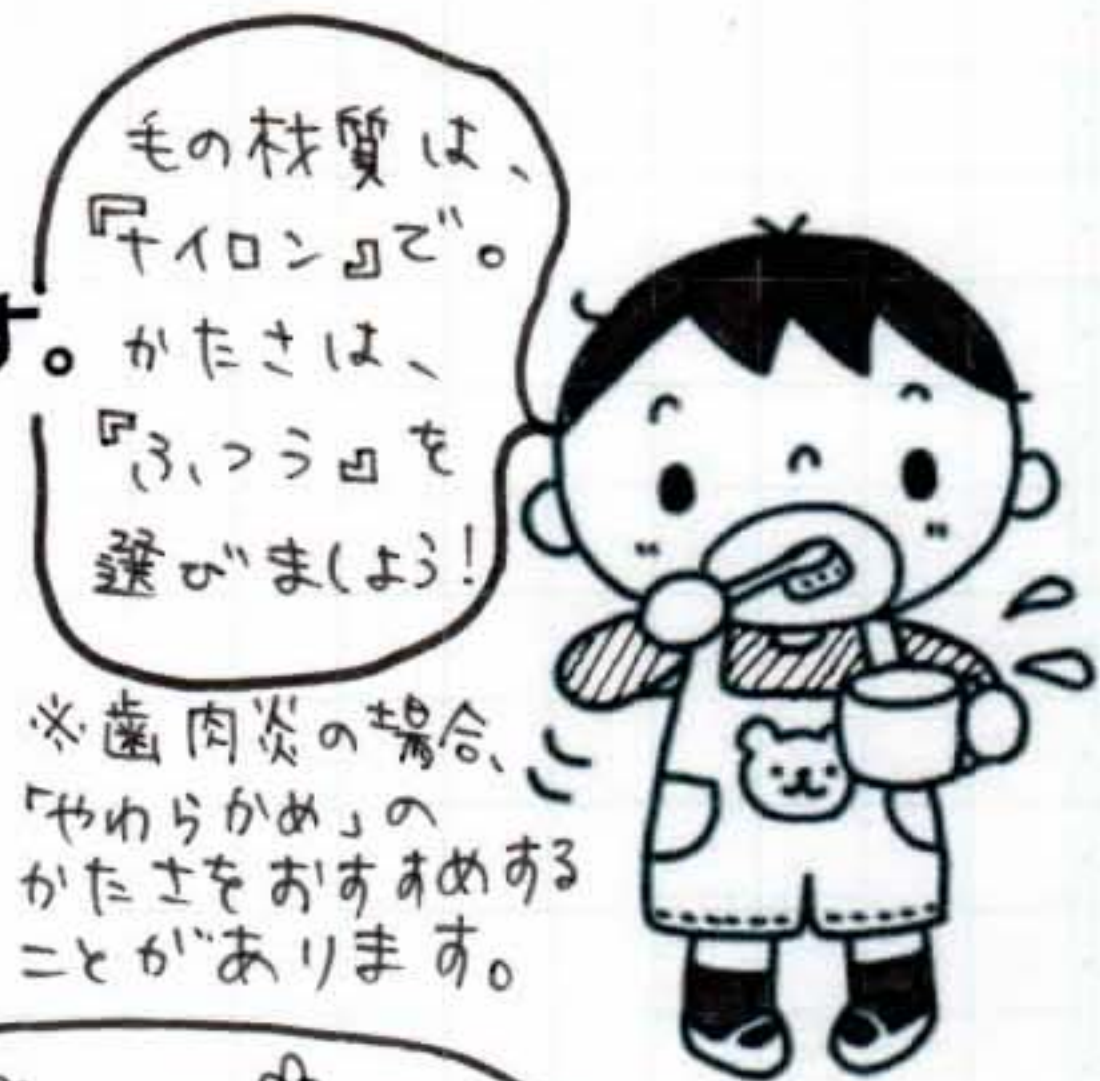 毛の材質は、
『ナイロン』で。
す。
かたさは、
『ふつう』を
選びましょう!
※歯肉炎の場合、
「やわらかめ」の
かたさをおすすめする
ことがあります。